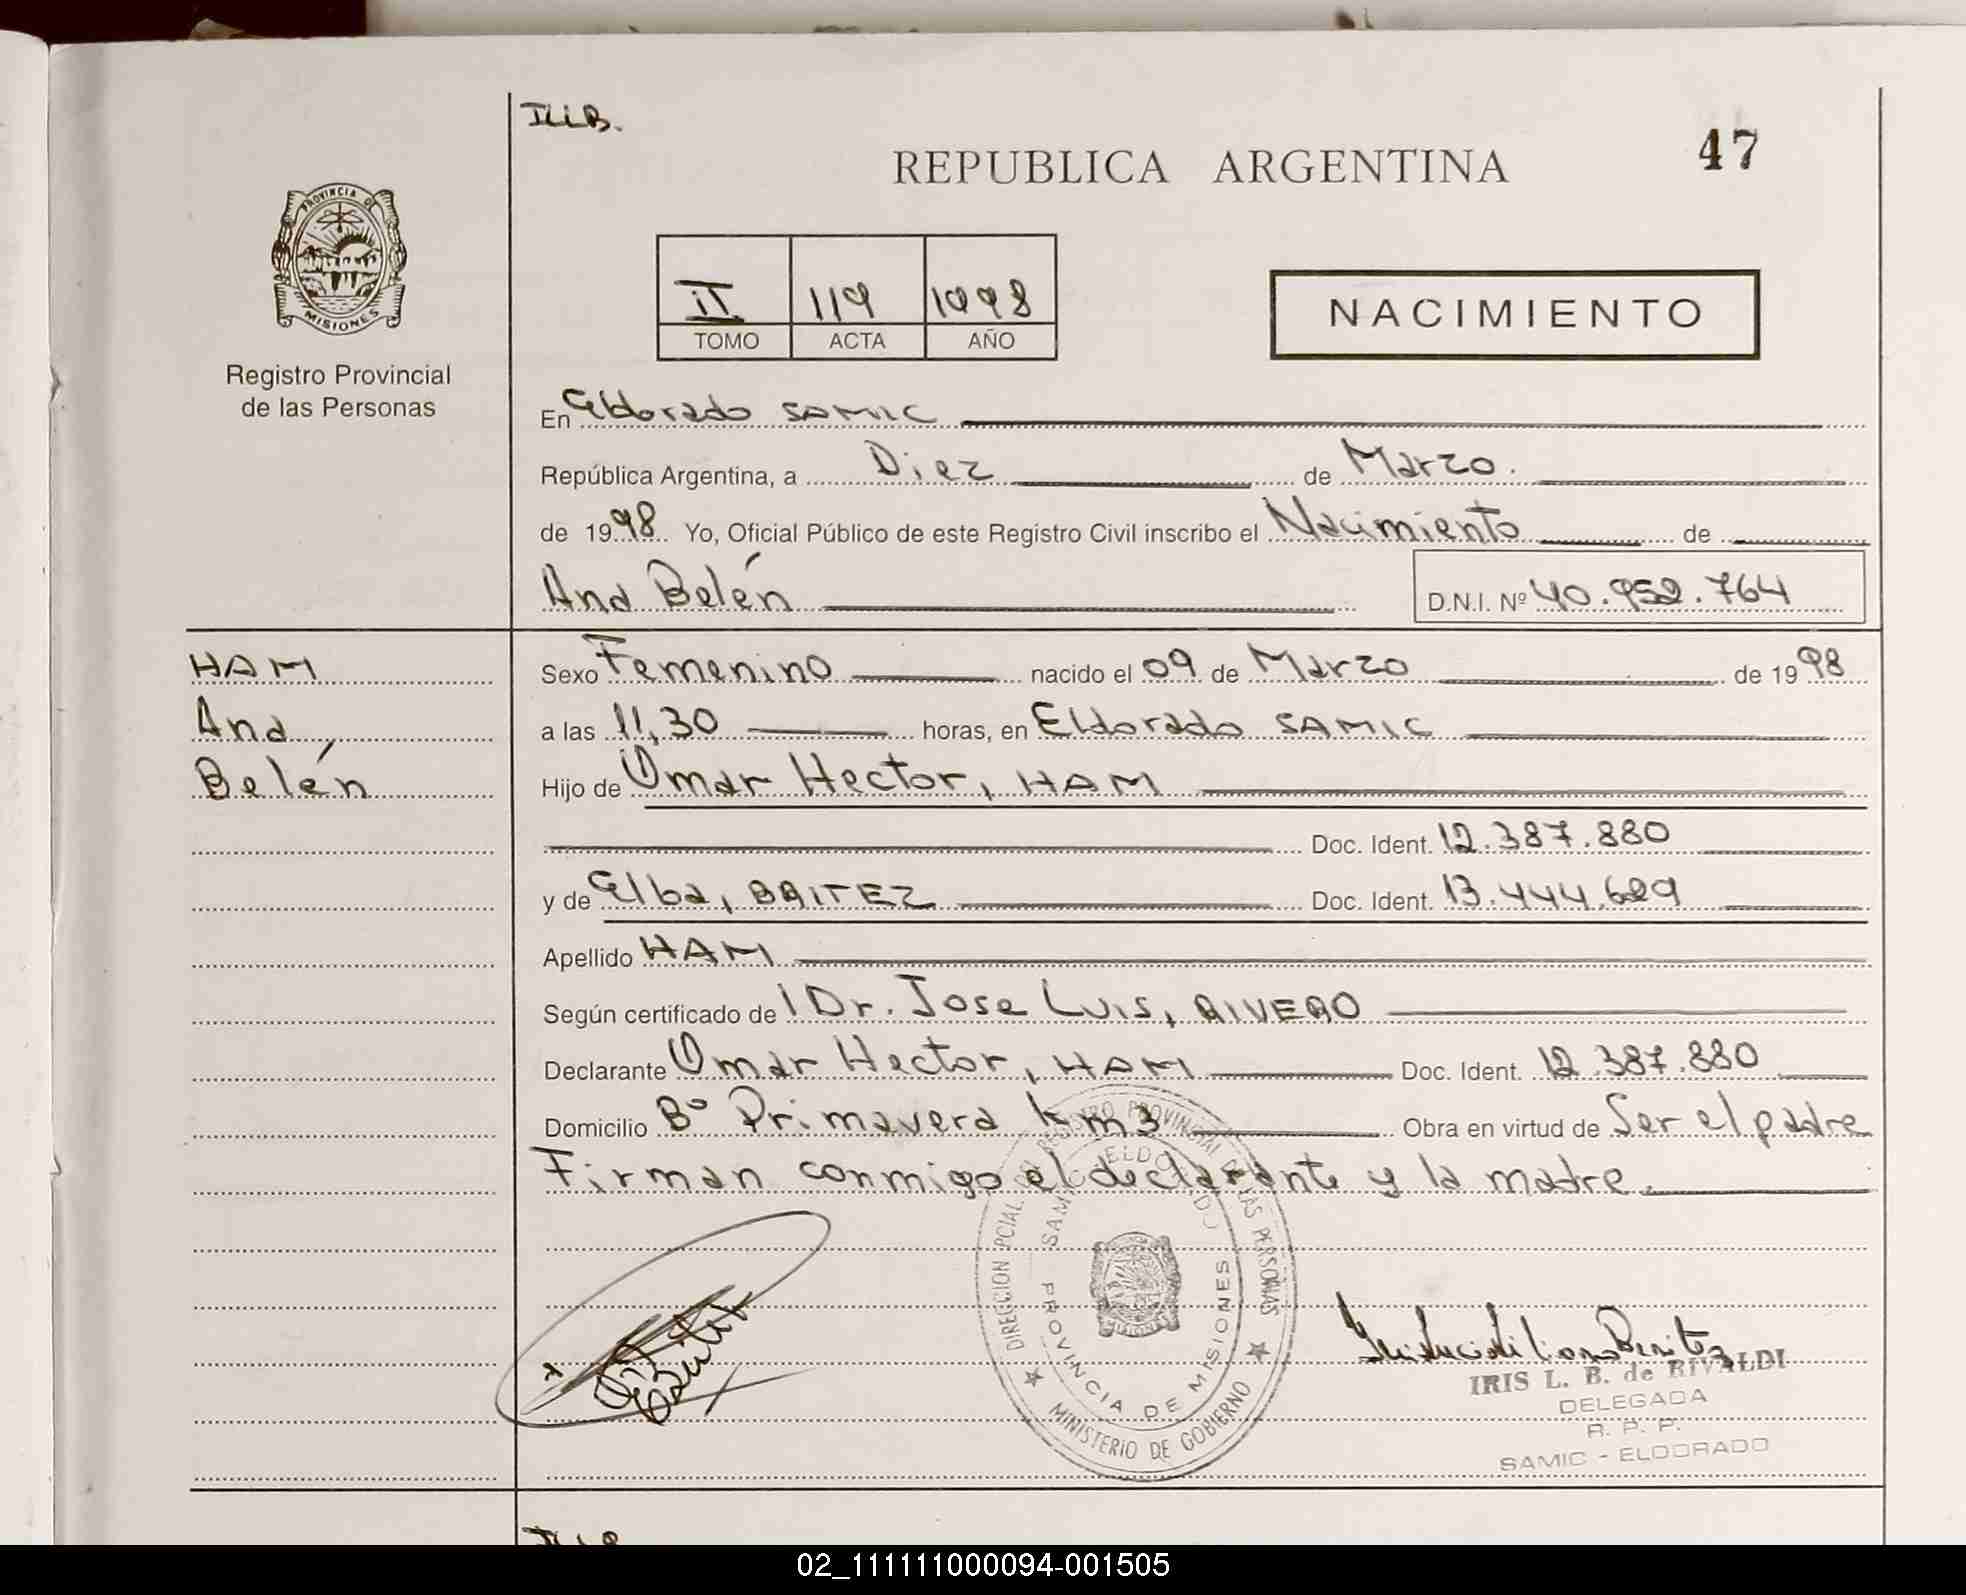 ILLB.
REPUBLICA ARGENTINA
47
PROVINCIA DE
MISIONES
Registro Provincial
de las Personas
II 119 1998
TOMO ACTA AÑO
NACIMIENTO
En Eldorado SAMIC
República Argentina, a Diez de Marzo.
de 1998 Yo, Oficial Público de este Registro Civil inscribo el Nacimiento de
Ana Belén D.N.I. Nº 40.952.764
HAM
Ana
Belén
Sexo Femenino nacido el 09 de Marzo de 1998
a las 11,30 horas, en Eldorado SAMIC
Hijo de Omar Hector, HAM
Doc. Ident. 12.387.880
y de Elba, BAITEZ Doc. Ident. 13.444.629
Apellido HAM
Según certificado de l Dr. Jose Luis, RIVERO
Declarante Omar Hector, HAM Doc. Ident. 12.387.880
Domicilio Bº Primavera km3 Obra en virtud de Ser el padre
Firman conmigo el declarante y la madre.
DIRECCION PCIAL. DEL REGISTRO PROVINCIAL DE LAS PERSONAS
SAMIC ELDORADO
PROVINCIA DE MISIONES
MINISTERIO DE GOBIERNO
IRIS L. B. de RIVALDI
DELEGADA
R. P. P.
SAMIC - ELDORADO
02_111111000094-001505